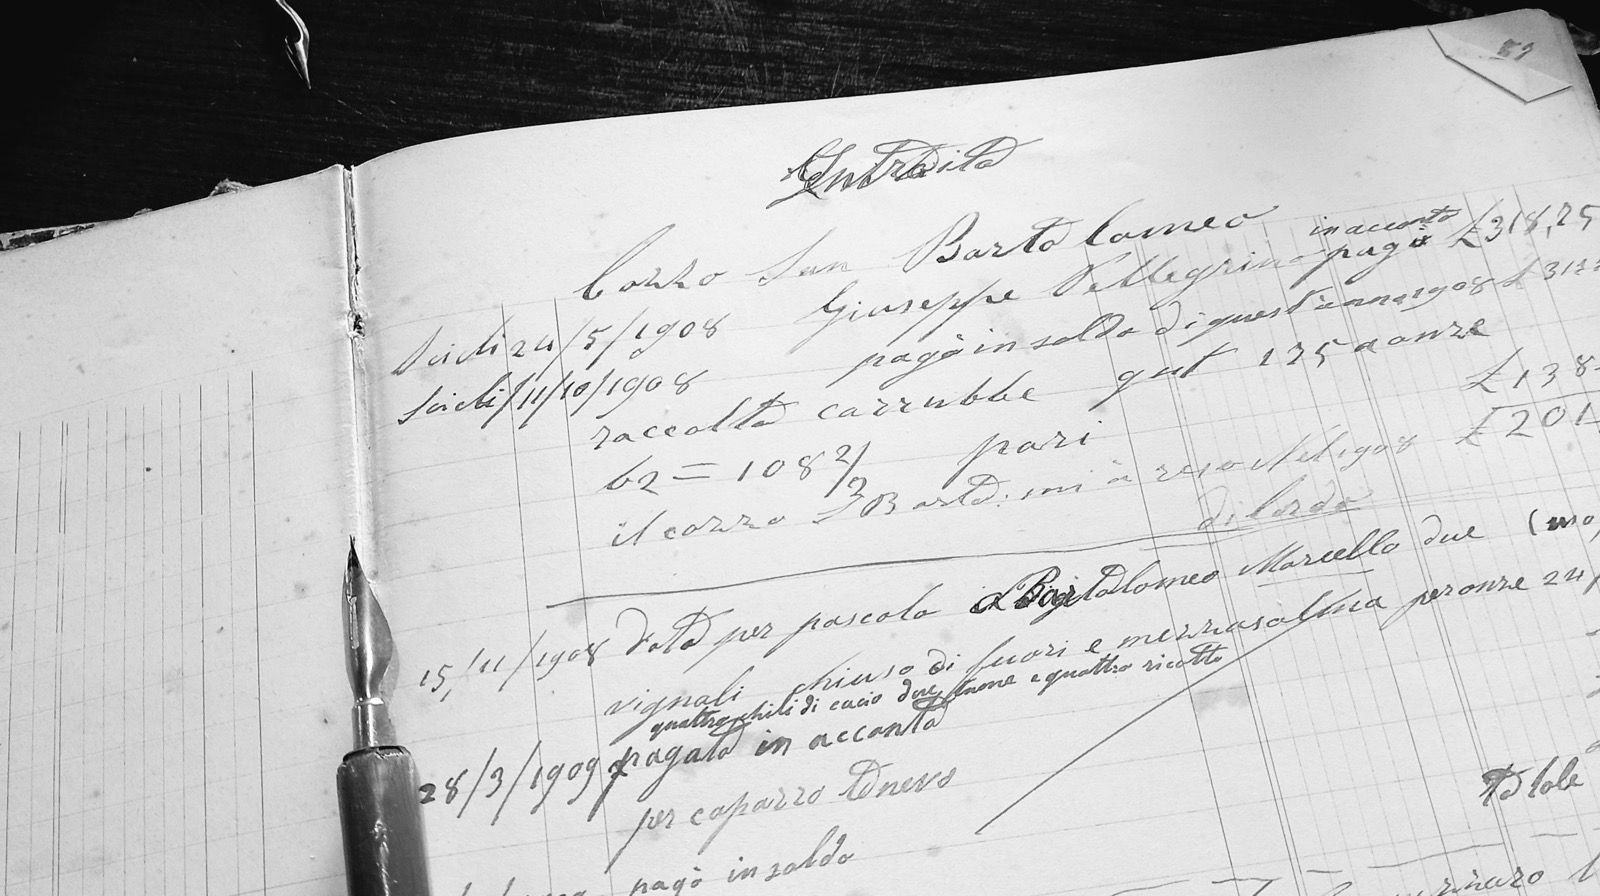 51
Introito
Cozzo San Bartolomeo
in acconto
Scicli 24/5/1908 Giuseppe Pellegrino pagò £ 318,25
Scicli 11/10/1908 pagò in saldo di quest'anno 1908 £ 317
raccolto carrubbe qut 175 a onze
62 = 108 2/3 pari £ 138
il cozzo S Barto: mi à reso Nel 1908 £ 201
di lordo
15/11/1908 Dato per pascolo a Bartolomeo Marcello due
vignali chiuso di fuori e menzasalma per onze 24
quattro chili di cacio due tume e quattro ricotte
28/3/1909 pagato in acconto
per caparro Tonevo
Totole
pagò in saldo